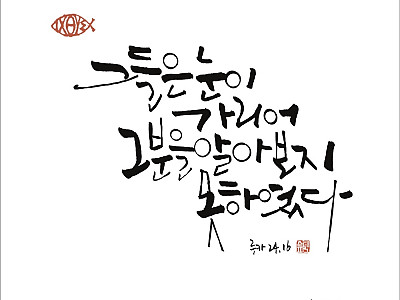 ΙΧΘΥΣ
그들은 눈이
가리어
그분을 알아보지
못하였다
루카 24,16